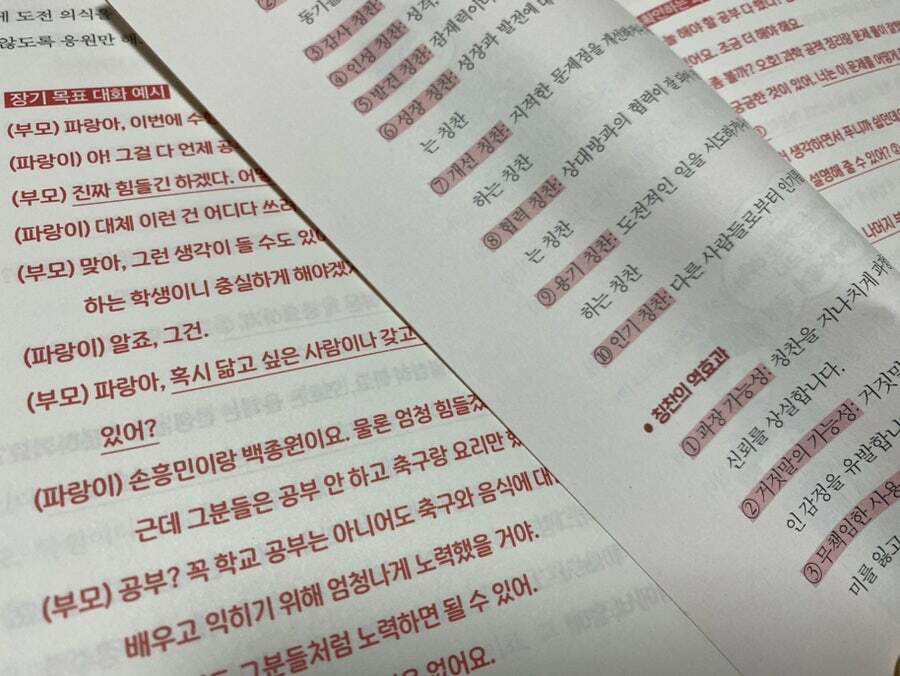 도전 의식을
않도록 응원만 해.
장기 목표 대화 예시
(부모) 파랑아, 이번에
(파랑이) 아! 그걸 다 언제
(부모) 진짜 힘들긴 하겠다.
(파랑이) 대체 이런 건 어디다
(부모) 맞아, 그런 생각이 들 수도
하는 학생이니 충실하게
(파랑이) 알죠, 그건.
(부모) 파랑아, 혹시 닮고 싶은 사람이나 갖고
있어?
(파랑이) 손흥민이랑 백종원이요. 물론 엄청
근데 그분들은 공부 안 하고 축구랑 요리만
(부모) 공부? 꼭 학교 공부는 아니어도 축구와 음식에
배우고 익히기 위해 엄청나게 노력했을 거야.
그분들처럼 노력하면 될 수 있어.
없어요.
③ 감사 칭찬:
④ 인정 칭찬:
⑤ 발전 칭찬: 잠재력이
⑥ 성장 칭찬: 성장과 발전에
는 칭찬
⑦ 개선 칭찬: 지적한 문제점을
하는 칭찬
⑧ 협력 칭찬: 상대방과의 협력이 잘
는 칭찬
⑨ 용기 칭찬: 도전적인 일을
하는 칭찬
⑩ 인기 칭찬: 다른 사람들로부터
• 칭찬의 역효과
① 과장 가능성: 칭찬을 지나치게
신뢰를 상실합니다.
② 거짓말의 가능성: 거짓말
인 감정을 유발합니
③ 무책임한 사용
미를 잃고
해야 할 공부 다 했
조금 더 해야 해요.
볼까? 오호! 과학 공책 정리랑 문제
궁금한 것이 있어. 너는 이 문제를
생각하면서 푸니까
설명해 줄 수 있어?
나머지